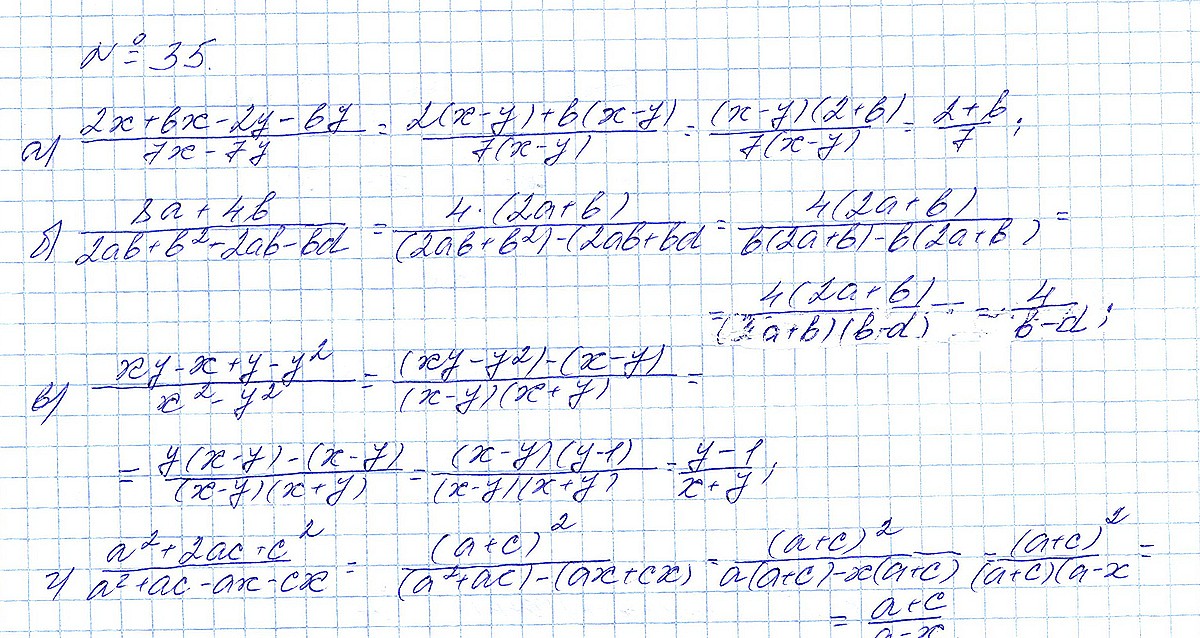 № 35.
а) (2x+bx-2y-by)/(7x-7y) = (2(x-y)+b(x-y))/(7(x-y)) = ((x-y)(2+b))/(7(x-y)) = (2+b)/7;
б) (8a+4b)/(2ab+b²-2ab-bd) = (4·(2a+b))/((2ab+b²)-(2ab+bd) = (4(2a+b))/(b(2a+b)-b(2a+b) =
= (4(2a+b))/((2a+b)(b-d)) = 4/(b-d);
в) (xy-x+y-y²)/(x²-y²) = ((xy-y2)-(x-y))/((x-y)(x+y)) =
= (y(x-y)-(x-y))/((x-y)(x+y)) = ((x-y)(y-1))/((x-y)(x+y)) = (y-1)/(x+y);
г) (a²+2ac+c²)/(a²+ac-ax-cx) = (a+c)²/((a²+ac)-(ax+cx)) = (a+c)²/(a(a+c)-x(a+c)) = (a+c)²/((a+c)(a-x) =
= (a+c)/(a-x)